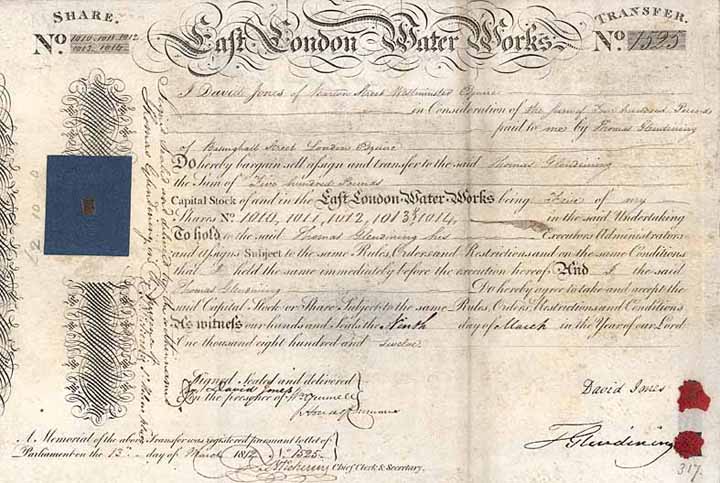 SHARE.
No. 1010. 1011. 1012
1013. 1014.
East London Water Works.
TRANSFER.
No. 1525
I David Jones of Street Westminster Esquire
in Consideration of the sum of Five hundred Pounds
paid to me by Thomas Glendining
of Basinghall Street London Esquire
Do hereby bargain sell assign and transfer to the said Thomas Glendining
the Sum of Five hundred Pounds
Capital Stock of and in the East London Water Works being Five of my
Shares No. 1010, 1011, 1012, 1013 & 1014, in the said Undertaking
To hold to the said Thomas Glendining his Executors Administrators
and Assigns Subject to the same Rules, Orders and Restrictions and on the same Conditions
that I held the same immediately before the execution hereof And I the said
Thomas Glendining Do hereby agree to take and accept the
said Capital Stock or Share Subject to the same Rules, Orders, Restrictions and Conditions
As witness our hands and Seals the Ninth day of March in the Year of our Lord
One thousand eight hundred and twelve
Signed Sealed and delivered
by David Jones
In the presence of
David Jones
T Glendining
A Memorial of the above Transfer was registered pursuant to Act of
Parliament on the 13th day of March 1812 No. 1525.
Pickering Chief Clerk & Secretary.
317.
Signed sealed and delivered by the within named
Thomas Glendining in the presence of
12 10 0